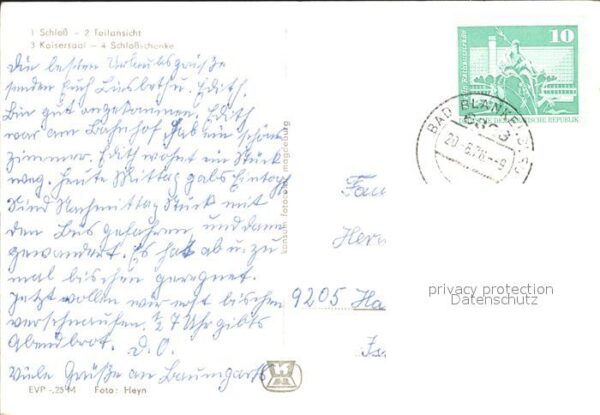 1 Schloß - 2 Teilansicht
3 Kaisersaal - 4 Schloßschenke
Die besten Urlaubsgrüße
senden Euch Lisbeth u. Edith.
Bin gut angekommen, Edith
war am Bahnhof hab ein schön
Zimmer. Edith wohnt ein Stück
weg. Heute Mittag gabs Eintopf
Sind Nachmittag Stück mit
den Bus gefahren, und dann
gewandert. Es hat ab u. zu
mal bischen geregnet.
Jetzt wollen wir erst bischen
verschnaufen. 1/2 7 Uhr gibts
Abendbrot. D. O.
Viele Grüße an Baumgarts
EVP -,25 M Foto: Heyn
konsum fotocolor magdeburg
10
DEUTSCHE DEMOKRATISCHE REPUBLIK
BAD BLANKENBURG
6823
Fam
Herr
9205 Ha
privacy protection
Datenschutz